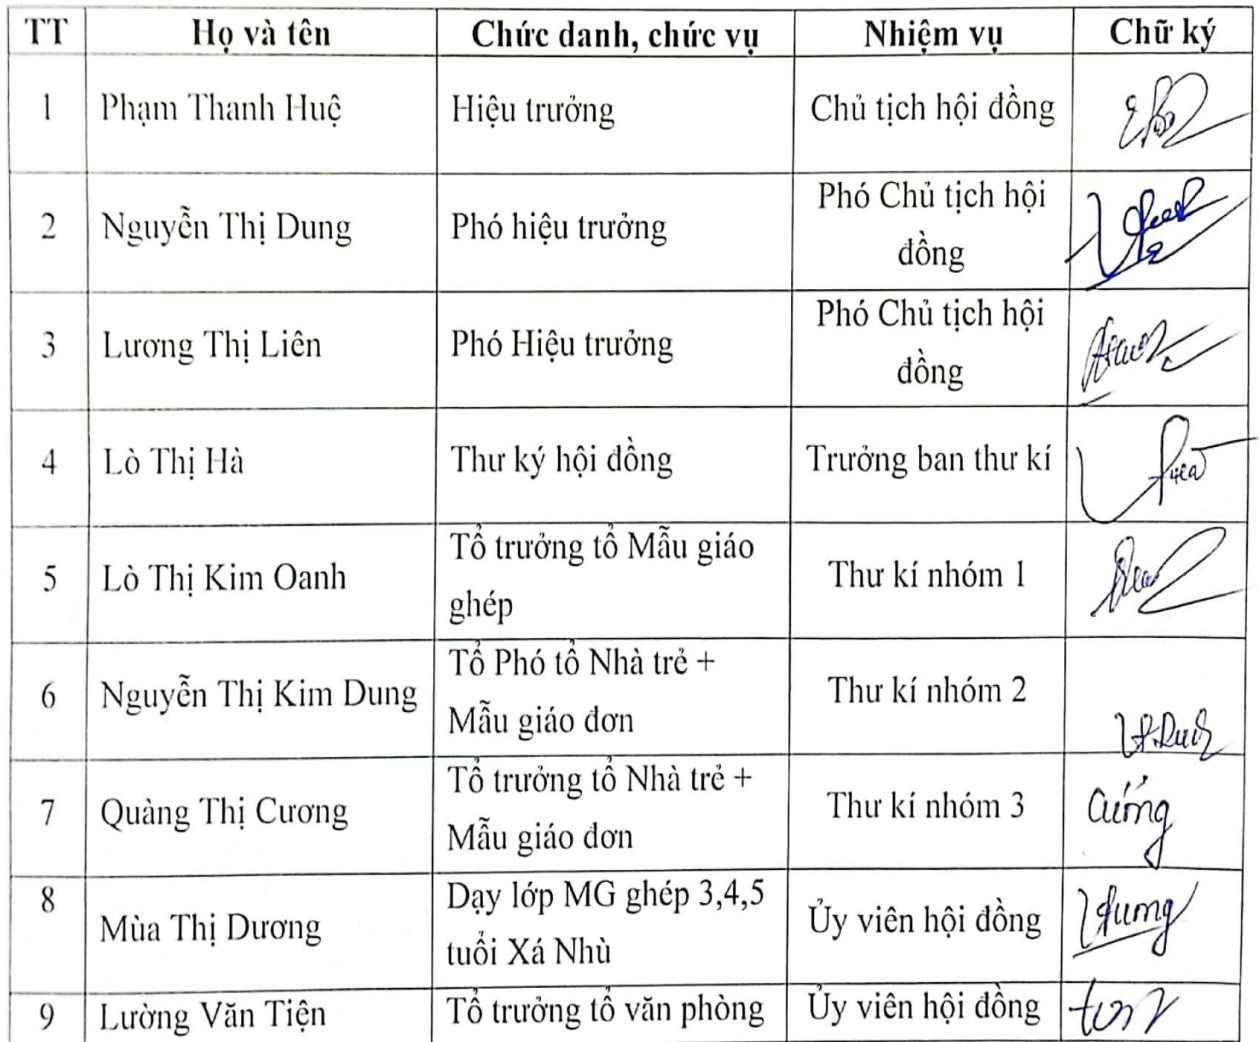 TT Họ và tên Chức danh, chức vụ Nhiệm vụ Chữ ký
1 Phạm Thanh Huệ Hiệu trưởng Chủ tịch hội đồng
2 Nguyễn Thị Dung Phó hiệu trưởng Phó Chủ tịch hội
đồng
3 Lương Thị Liên Phó Hiệu trưởng Phó Chủ tịch hội
đồng
4 Lò Thị Hà Thư ký hội đồng Trưởng ban thư kí
5 Lò Thị Kim Oanh Tổ trưởng tổ Mẫu giáo
ghép
Thư kí nhóm 1
6 Nguyễn Thị Kim Dung Tổ Phó tổ Nhà trẻ +
Mẫu giáo đơn
Thư kí nhóm 2
7 Quàng Thị Cương Tổ trưởng tổ Nhà trẻ +
Mẫu giáo đơn
Thư kí nhóm 3
8 Mùa Thị Dương Dạy lớp MG ghép 3,4,5
tuổi Xá Nhù
Ủy viên hội đồng
9 Lường Văn Tiện Tổ trưởng tổ văn phòng Ủy viên hội đồng